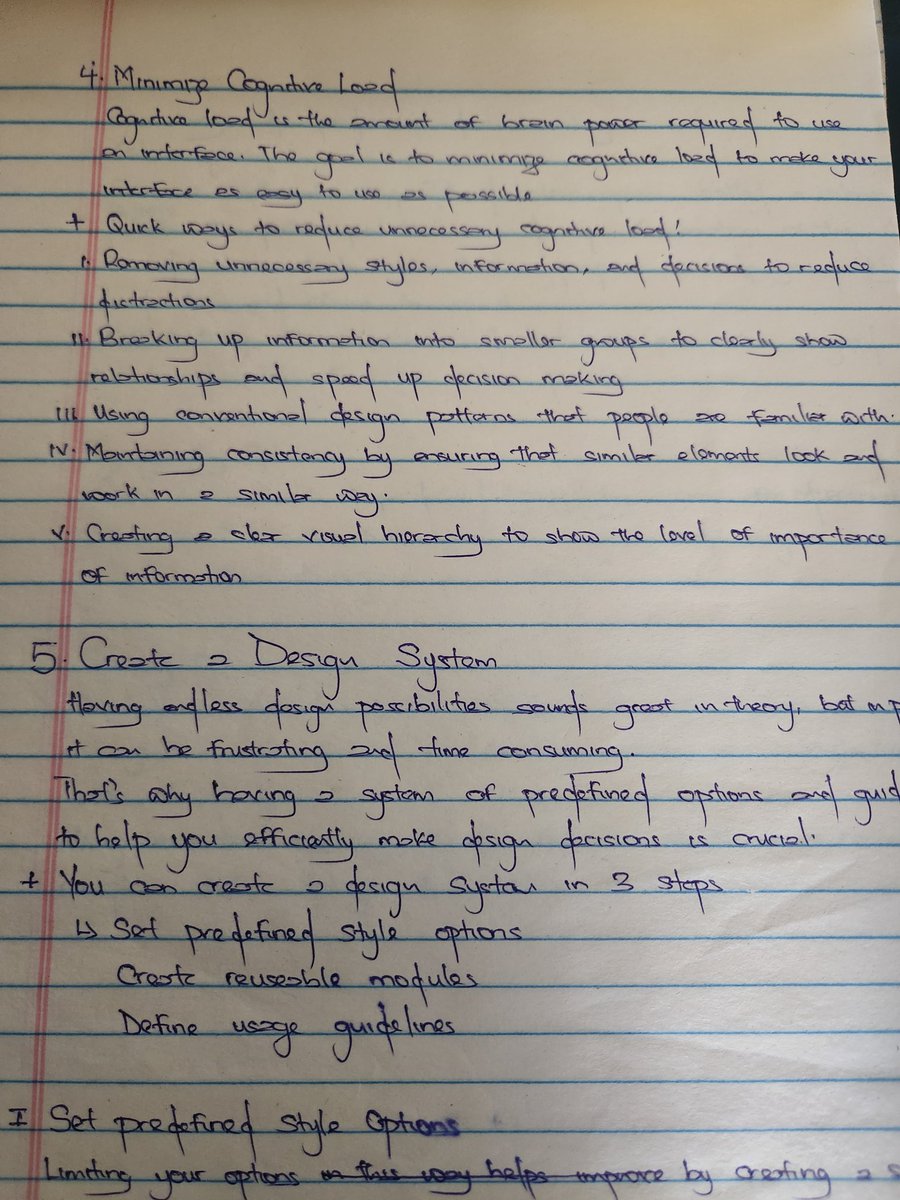 4. Minimize Cognitive Load
Cognitive load is the amount of brain power required to use
an interface. The goal is to minimize cognitive load to make your
interface as easy to use as possible
+ Quick ways to reduce unnecessary cognitive load:
I. Removing unnecessary styles, information, and decisions to reduce
distractions
II. Breaking up information into smaller groups to clearly show
relationships and speed up decision making
III. Using conventional design patterns that people are familiar with.
IV. Maintaining consistency by ensuring that similar elements look and
work in a similar way.
V. Creating a clear visual hierarchy to show the level of importance
of information
5. Create a Design System
Having endless design possibilities sounds great in theory, but in
it can be frustrating and time consuming.
That's why having a system of predefined options and
to help you efficiently make design decisions is crucial.
+ You can create a design system in 3 steps
↳ Set predefined style options
Create reuseable modules
Define usage guidelines
I Set predefined style Options
Limiting your options in this way helps improve by creating a